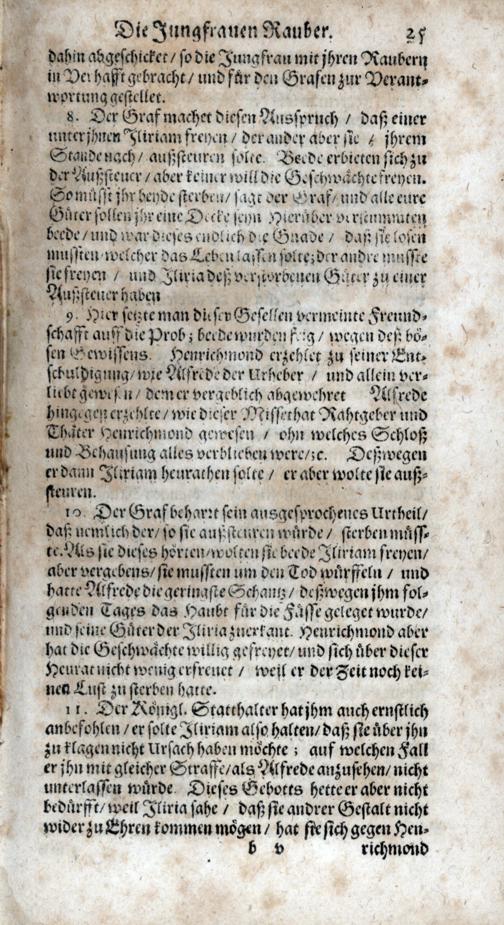 Die Jungfrauen Rauber. 25
dahin abgeschicket / so die Jungfrau mit jhren Raubern
in Verhafft gebracht / und für den Grafen zur Verant-
wortung gestellet.
8. Der Graf machet diesen Ausspruch / daß einer
unter jhnen Iliriam freyen / der ander aber sie / jhrem
Stande nach / außsteuren solte. Beede erbieten sich zu
der Außsteuer / aber keiner will die Geschwächte freyen.
So müsst jhr beyde sterben / sagt der Graf / und alle eure
Güter sollen jhr eine Decke seyn Hierüber verstummten
beede / und war dieses endlich die Gnade / daß sie losen
mussten welcher das Leben lassen solte; der andre musste
sie freyen / und Iliria deß verstorbenen Güter zu einer
Außsteuer haben
9. Hier setzte man dieser Gesellen vermeinte Freund-
schafft auff die Prob; beede wurden feig / wegen deß bö-
sen Gewissens. Henrichmond erzehlet zu seiner Ent-
schuldigung / wie Alfrede der Urheber / und allein ver-
liebt gewesen / dem er vergeblich abgewehret Alfrede
hingegen erzehlte / wie dieser Missethat Rahtgeber und
Thäter Henrichmond gewesen / ohn welches Schloß
und Behausung alles verblieben were / ꝛc. Deßwegen
er dann Iliriam heurathen solte / er aber wolte sie auß-
steuren.
10. Der Graf beharrt sein ausgesprochenes Urtheil /
daß nemlich der / so sie außsteuren würde / sterben müss-
te. Als sie dieses hörten / wolten sie beede Iliriam freyen /
aber vergebens / sie mussten um den Tod würffeln / und
hatte Alfrede die geringste Schantz / deßwegen jhm fol-
genden Tages das Haubt für die Füsse geleget wurde /
und seine Güter der Iliria zuerkant. Henrichmond aber
hat die Geschwächte willig gefreyet / und sich über dieser
Heurat nicht wenig erfreuet / weil er der Zeit noch kei-
nen Lust zu sterben hatte.
11. Der Königl. Statthalter hat jhm auch ernstlich
anbefohlen / er solte Iliriam also halten / daß sie über jhn
zu klagen nicht Ursach haben möchte; auf welchen Fall
er jhn mit gleicher Straffe / als Alfrede anzusehen / nicht
unterlassen würde. Dieses Gebotts hette er aber nicht
bedürfft / weil Iliria sahe / daß sie andrer Gestalt nicht
wider zu Ehren kommen mögen / hat sie sich gegen Hen-
b v richmond